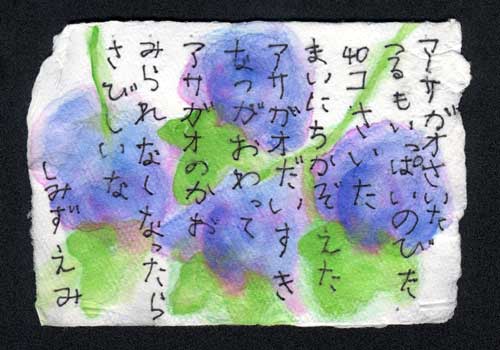 アサガオさいた
つるもいっぱいのびた
40コさいた
まいにちかぞえた
アサガオだいすき
なつがおわって
アサガオのかお
みられなくなったら
さびしいな
しみずえみ